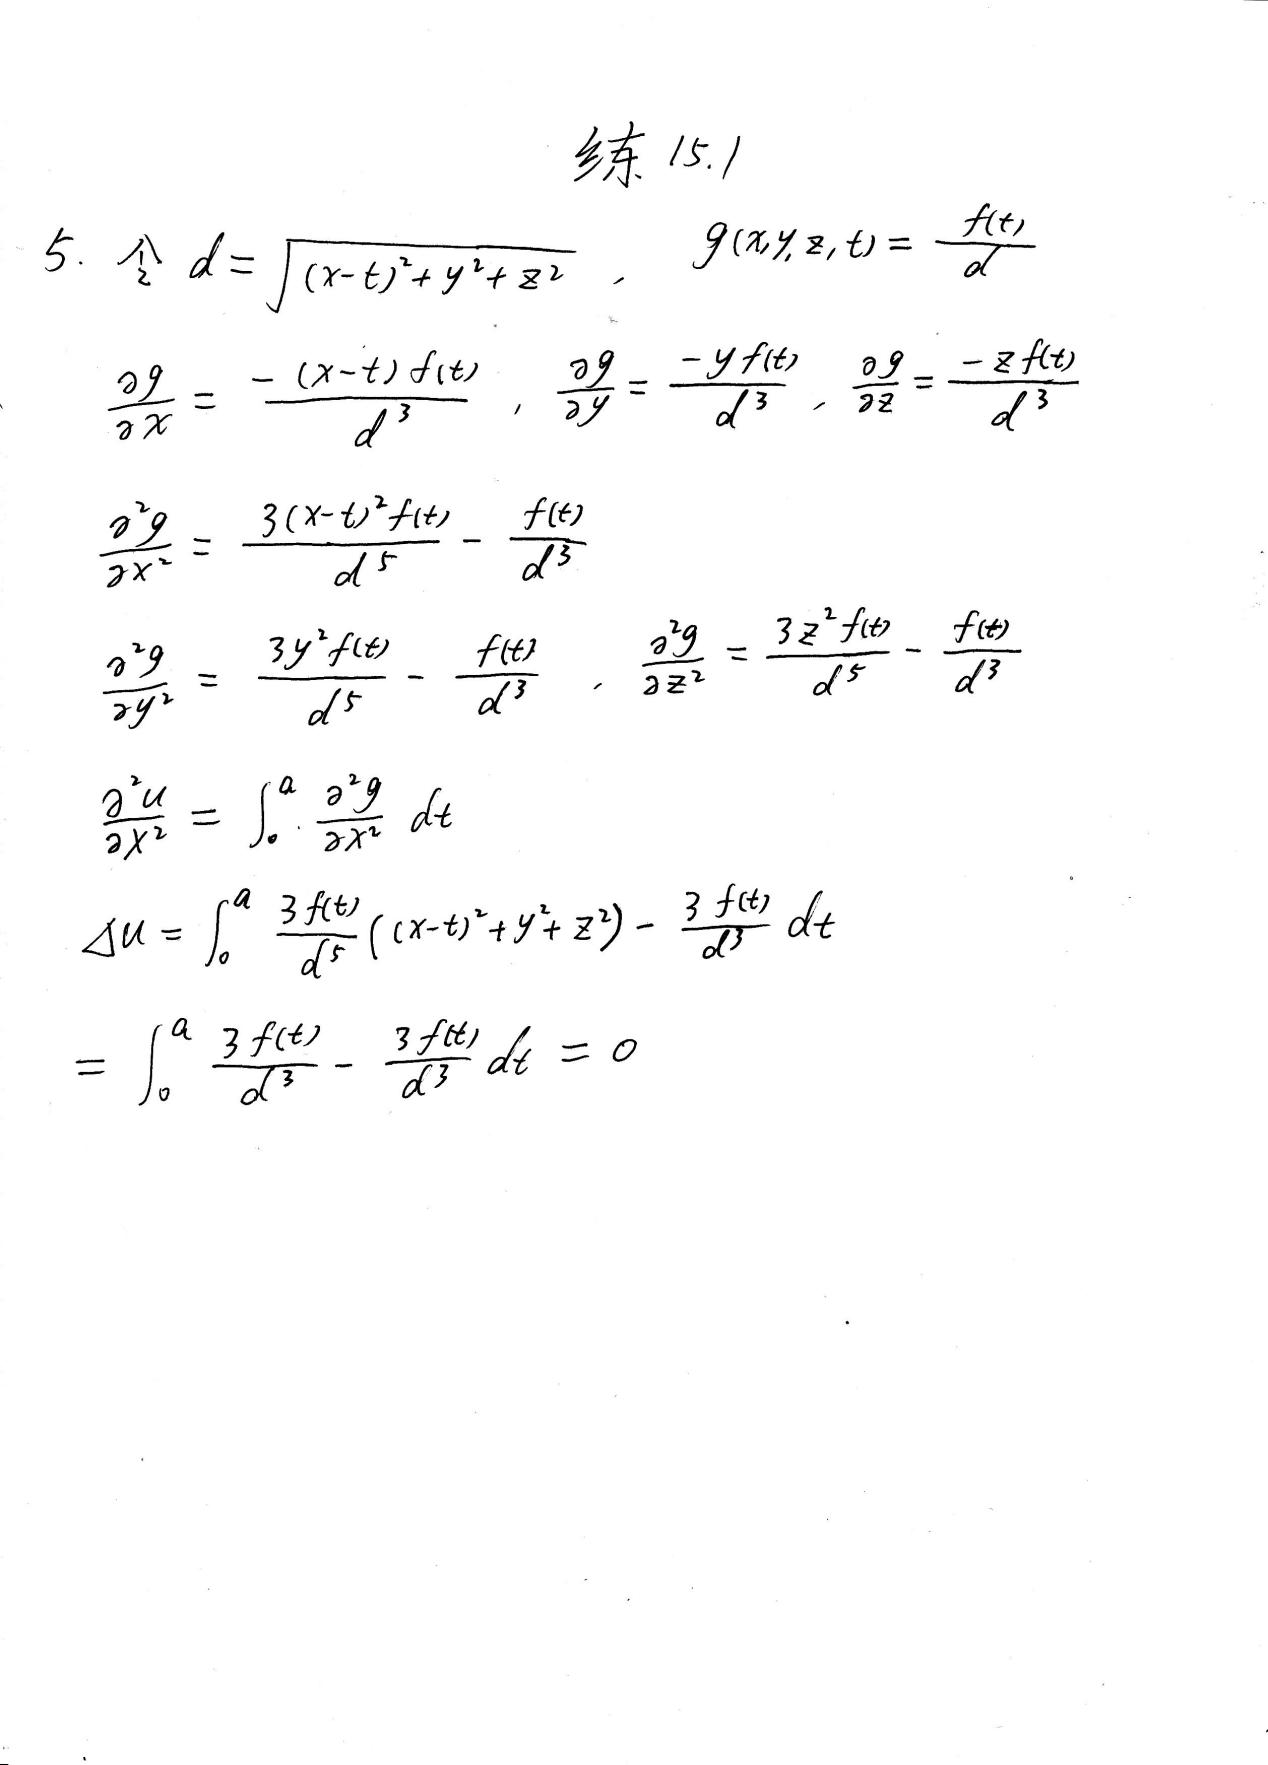 练 15.1
5. 令 d = √((x-t)²+y²+z²) , g(x,y,z,t) = f(t)/d
∂g/∂x = -(x-t)f(t)/d³ , ∂g/∂y = -yf(t)/d³ , ∂g/∂z = -zf(t)/d³
∂²g/∂x² = 3(x-t)²f(t)/d⁵ - f(t)/d³
∂²g/∂y² = 3y²f(t)/d⁵ - f(t)/d³ , ∂²g/∂z² = 3z²f(t)/d⁵ - f(t)/d³
∂²u/∂x² = ∫₀ᵃ ∂²g/∂x² dt
Δu = ∫₀ᵃ 3f(t)/d⁵ ((x-t)²+y²+z²) - 3f(t)/d³ dt
= ∫₀ᵃ 3f(t)/d³ - 3f(t)/d³ dt = 0